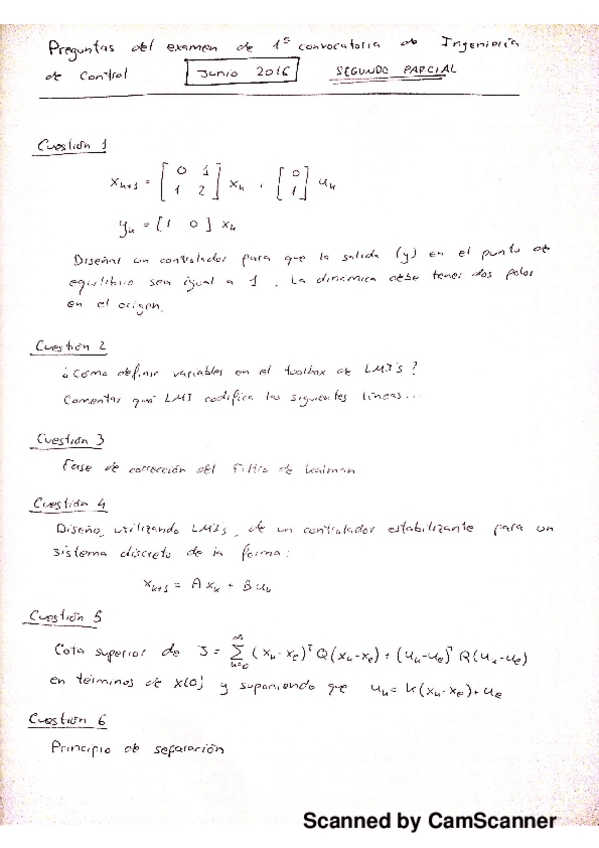 Preguntas del examen de 1ª convocatoria de Ingeniería
de Control Junio 2016 SEGUNDO PARCIAL
Cuestión 1
x_{k+1} = [0 1; 1 2] x_k + [0; 1] u_k
y_k = [1 0] x_k
Diseñar un controlador para que la salida (y) en el punto de
equilibrio sea igual a 1. La dinámica debe tener dos polos
en el origen.
Cuestión 2
¿Cómo definir variables en el toolbox de LMI's?
Comentar qué LMI codifica las siguientes líneas...
Cuestión 3
Fase de corrección del Filtro de Kalman
Cuestión 4
Diseño, utilizando LMIs, de un controlador estabilizante para un
sistema discreto de la forma:
x_{k+1} = A x_k + B u_k
Cuestión 5
Cota superior de J = ∑_{k=0}^{∞} (x_k - x_e)^T Q (x_k - x_e) + (u_k - u_e)^T R (u_k - u_e)
en términos de x(0) y suponiendo que u_k = K(x_k - x_e) + u_e
Cuestión 6
Principio de separación
Scanned by CamScanner